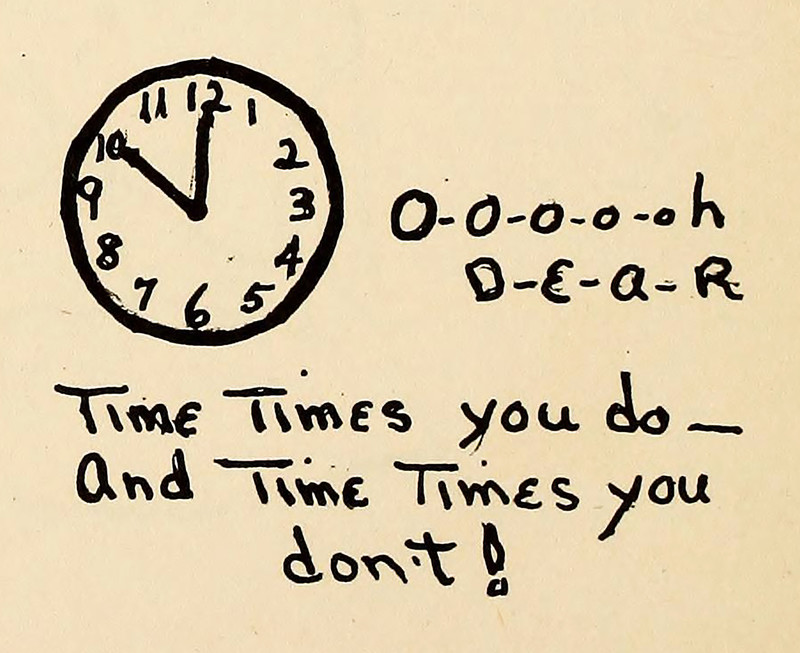 11 12 1
10 2
9 3
8 4
7 6 5
O-O-O-o-oh
D-E-a-R
Time Times you do —
And Time Times you
don't!